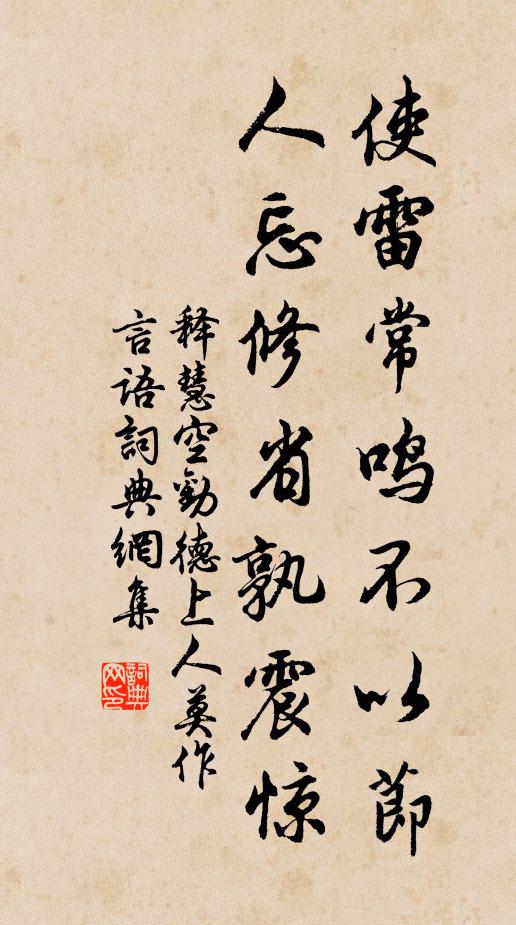 使雷常鸣不以節
人忘修省孰震惊
释慧空勸德上人莫作
言语詞典網集
詞典
网印